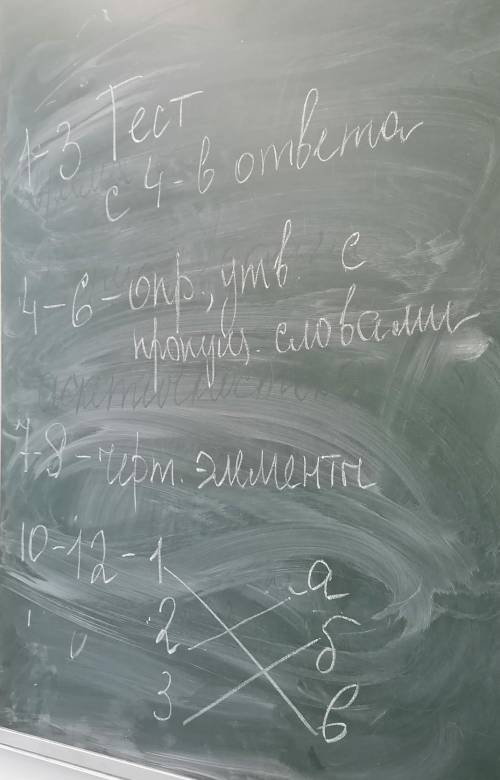 1-3 Тест
с 4-в ответа
4-6-опр., утв. с
пропущ. словами
7-8-черт. элементы
10-12-1 а
2 б
3 в